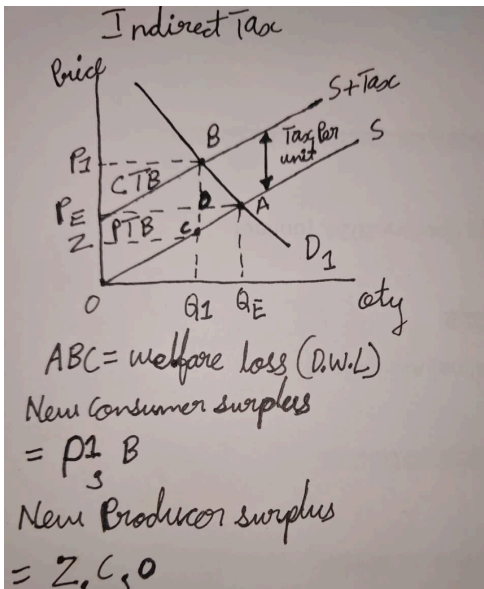 Indirect Tax
Price
S+Tax
B
Tax Per
unit
S
P1
CTB
D
A
PE
PTB
Z
C
D1
O
Q1
QE
Qty
ABC = welfare loss (D.W.L)
New Consumer surplus
= P1, B
New Producer surplus
= Z, C, O